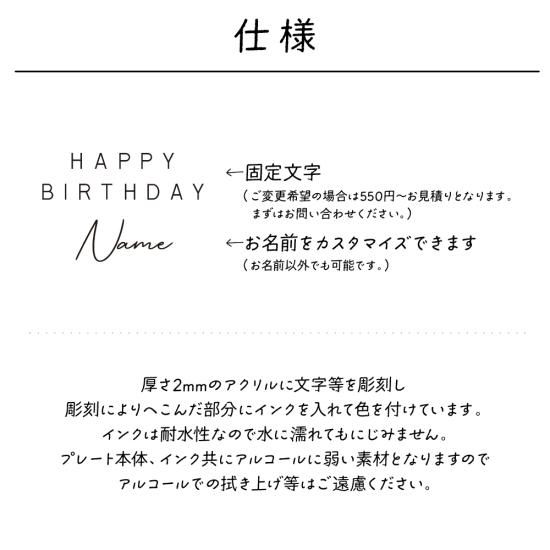 仕様
HAPPY
BIRTHDAY
←固定文字
(ご変更希望の場合は550円〜お見積りとなります。
まずはお問い合わせください。)
Name
←お名前をカスタマイズできます
(お名前以外でも可能です。)
厚さ2mmのアクリルに文字等を彫刻し
彫刻によりへこんだ部分にインクを入れて色を付けています。
インクは耐水性なので水に濡れてもにじみません。
プレート本体、インク共にアルコールに弱い素材となりますので
アルコールでの拭き上げ等はご遠慮ください。